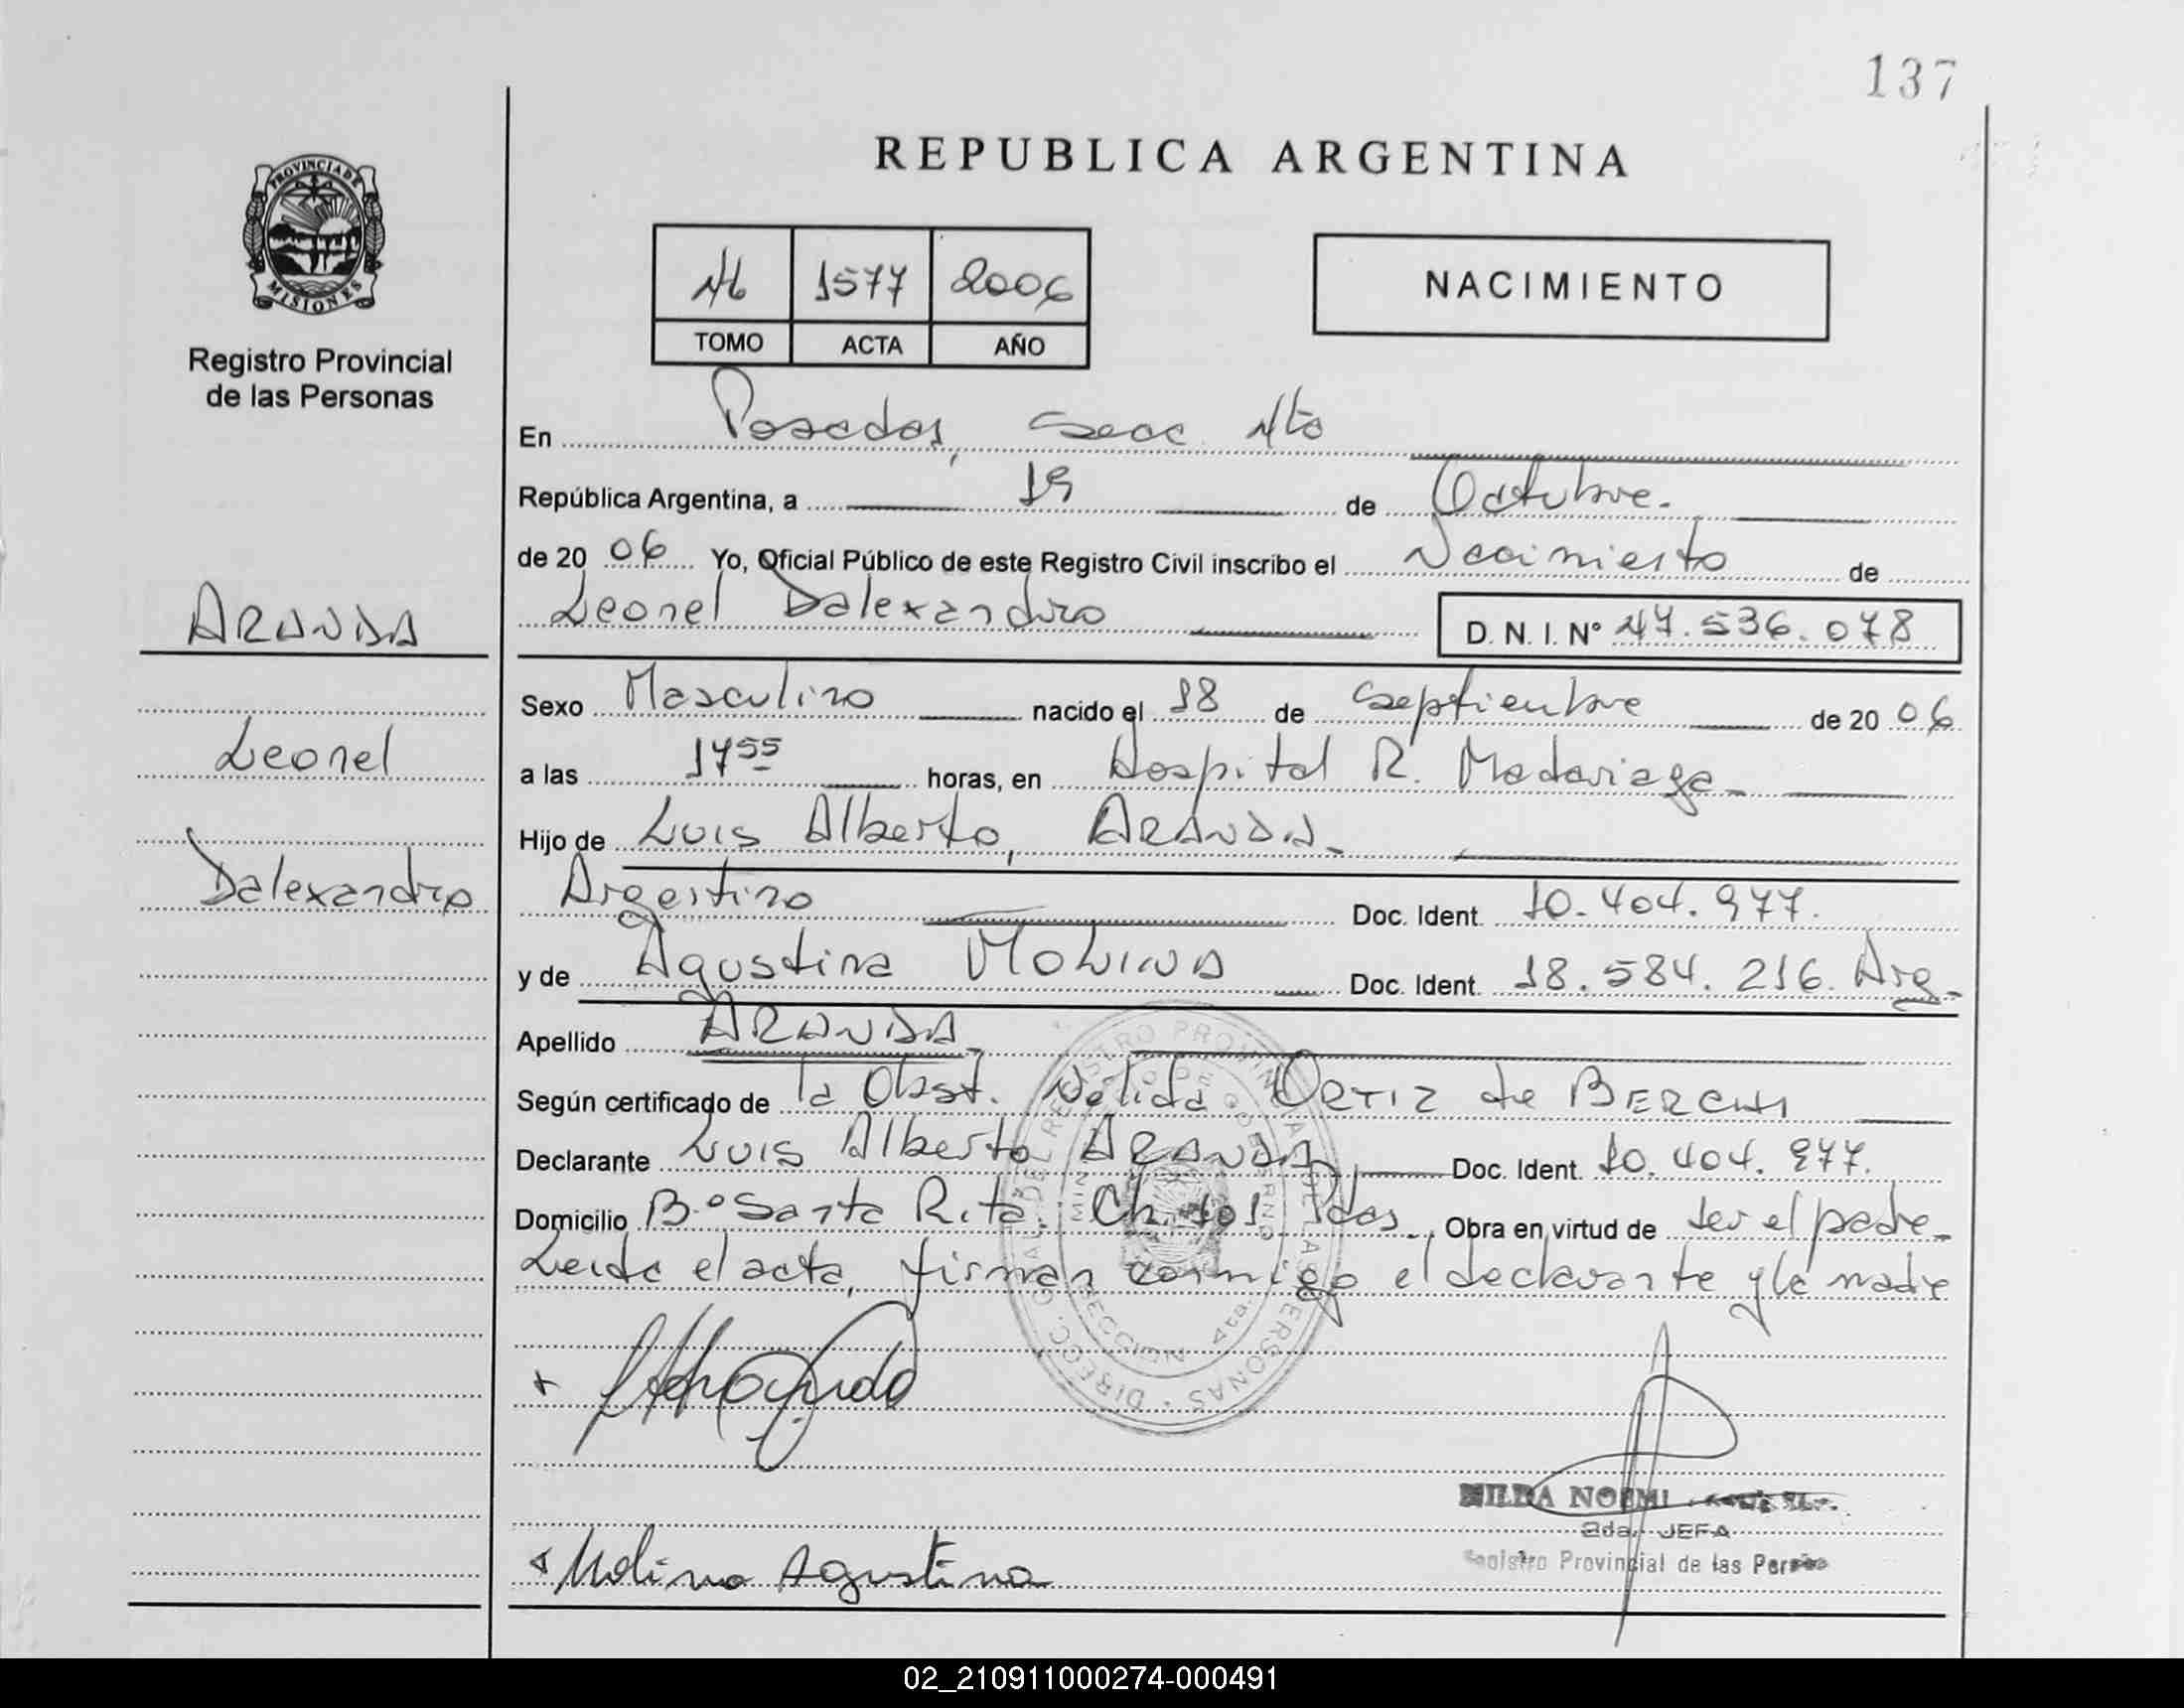 137
REPUBLICA ARGENTINA
PROVINCIA DE
MISIONES
Registro Provincial
de las Personas
1577 2006
TOMO ACTA AÑO
NACIMIENTO
En Posadas, Secc. 4ta
República Argentina, a 19 de Octubre.
de 20 06 Yo, Oficial Público de este Registro Civil inscribo el Nacimiento de
Leonel Dalexandro D. N. I. N° 47.536.078
ARANDA
Leonel
Dalexandro
Sexo Masculino nacido el 18 de Septiembre de 20 06
a las 17 55 horas, en Hospital R. Madariaga
Hijo de Luis Alberto, ARANDA
Argentino Doc. Ident. 10.404.977.
y de Agustina MOLINA Doc. Ident. 18.584.216. Arg.
Apellido ARANDA
Según certificado de la Obst. Nelida ORTIZ de
Declarante Luis Alberto ARANDA Doc. Ident. 10.404.977.
Domicilio B.º Santa Rita. Obra en virtud de ser el padre
Leida el acta, firman conmigo el declarante y la madre
Molina Agustina
NOEMI
2da. JEFA
Registro Provincial de las
02_210911000274-000491